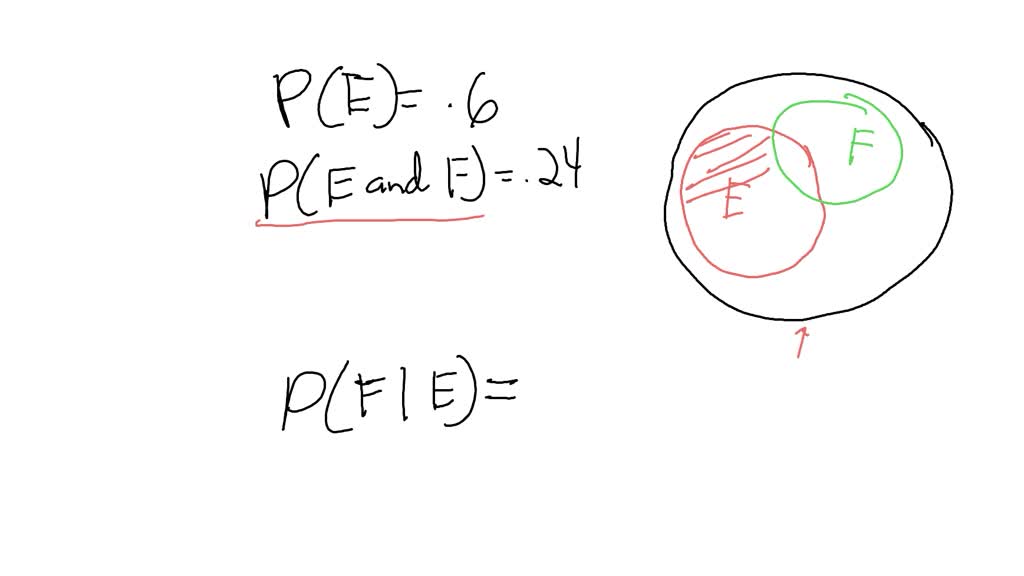 P(E) = .6
P(E and F) = .24
E
F
P(F | E) =